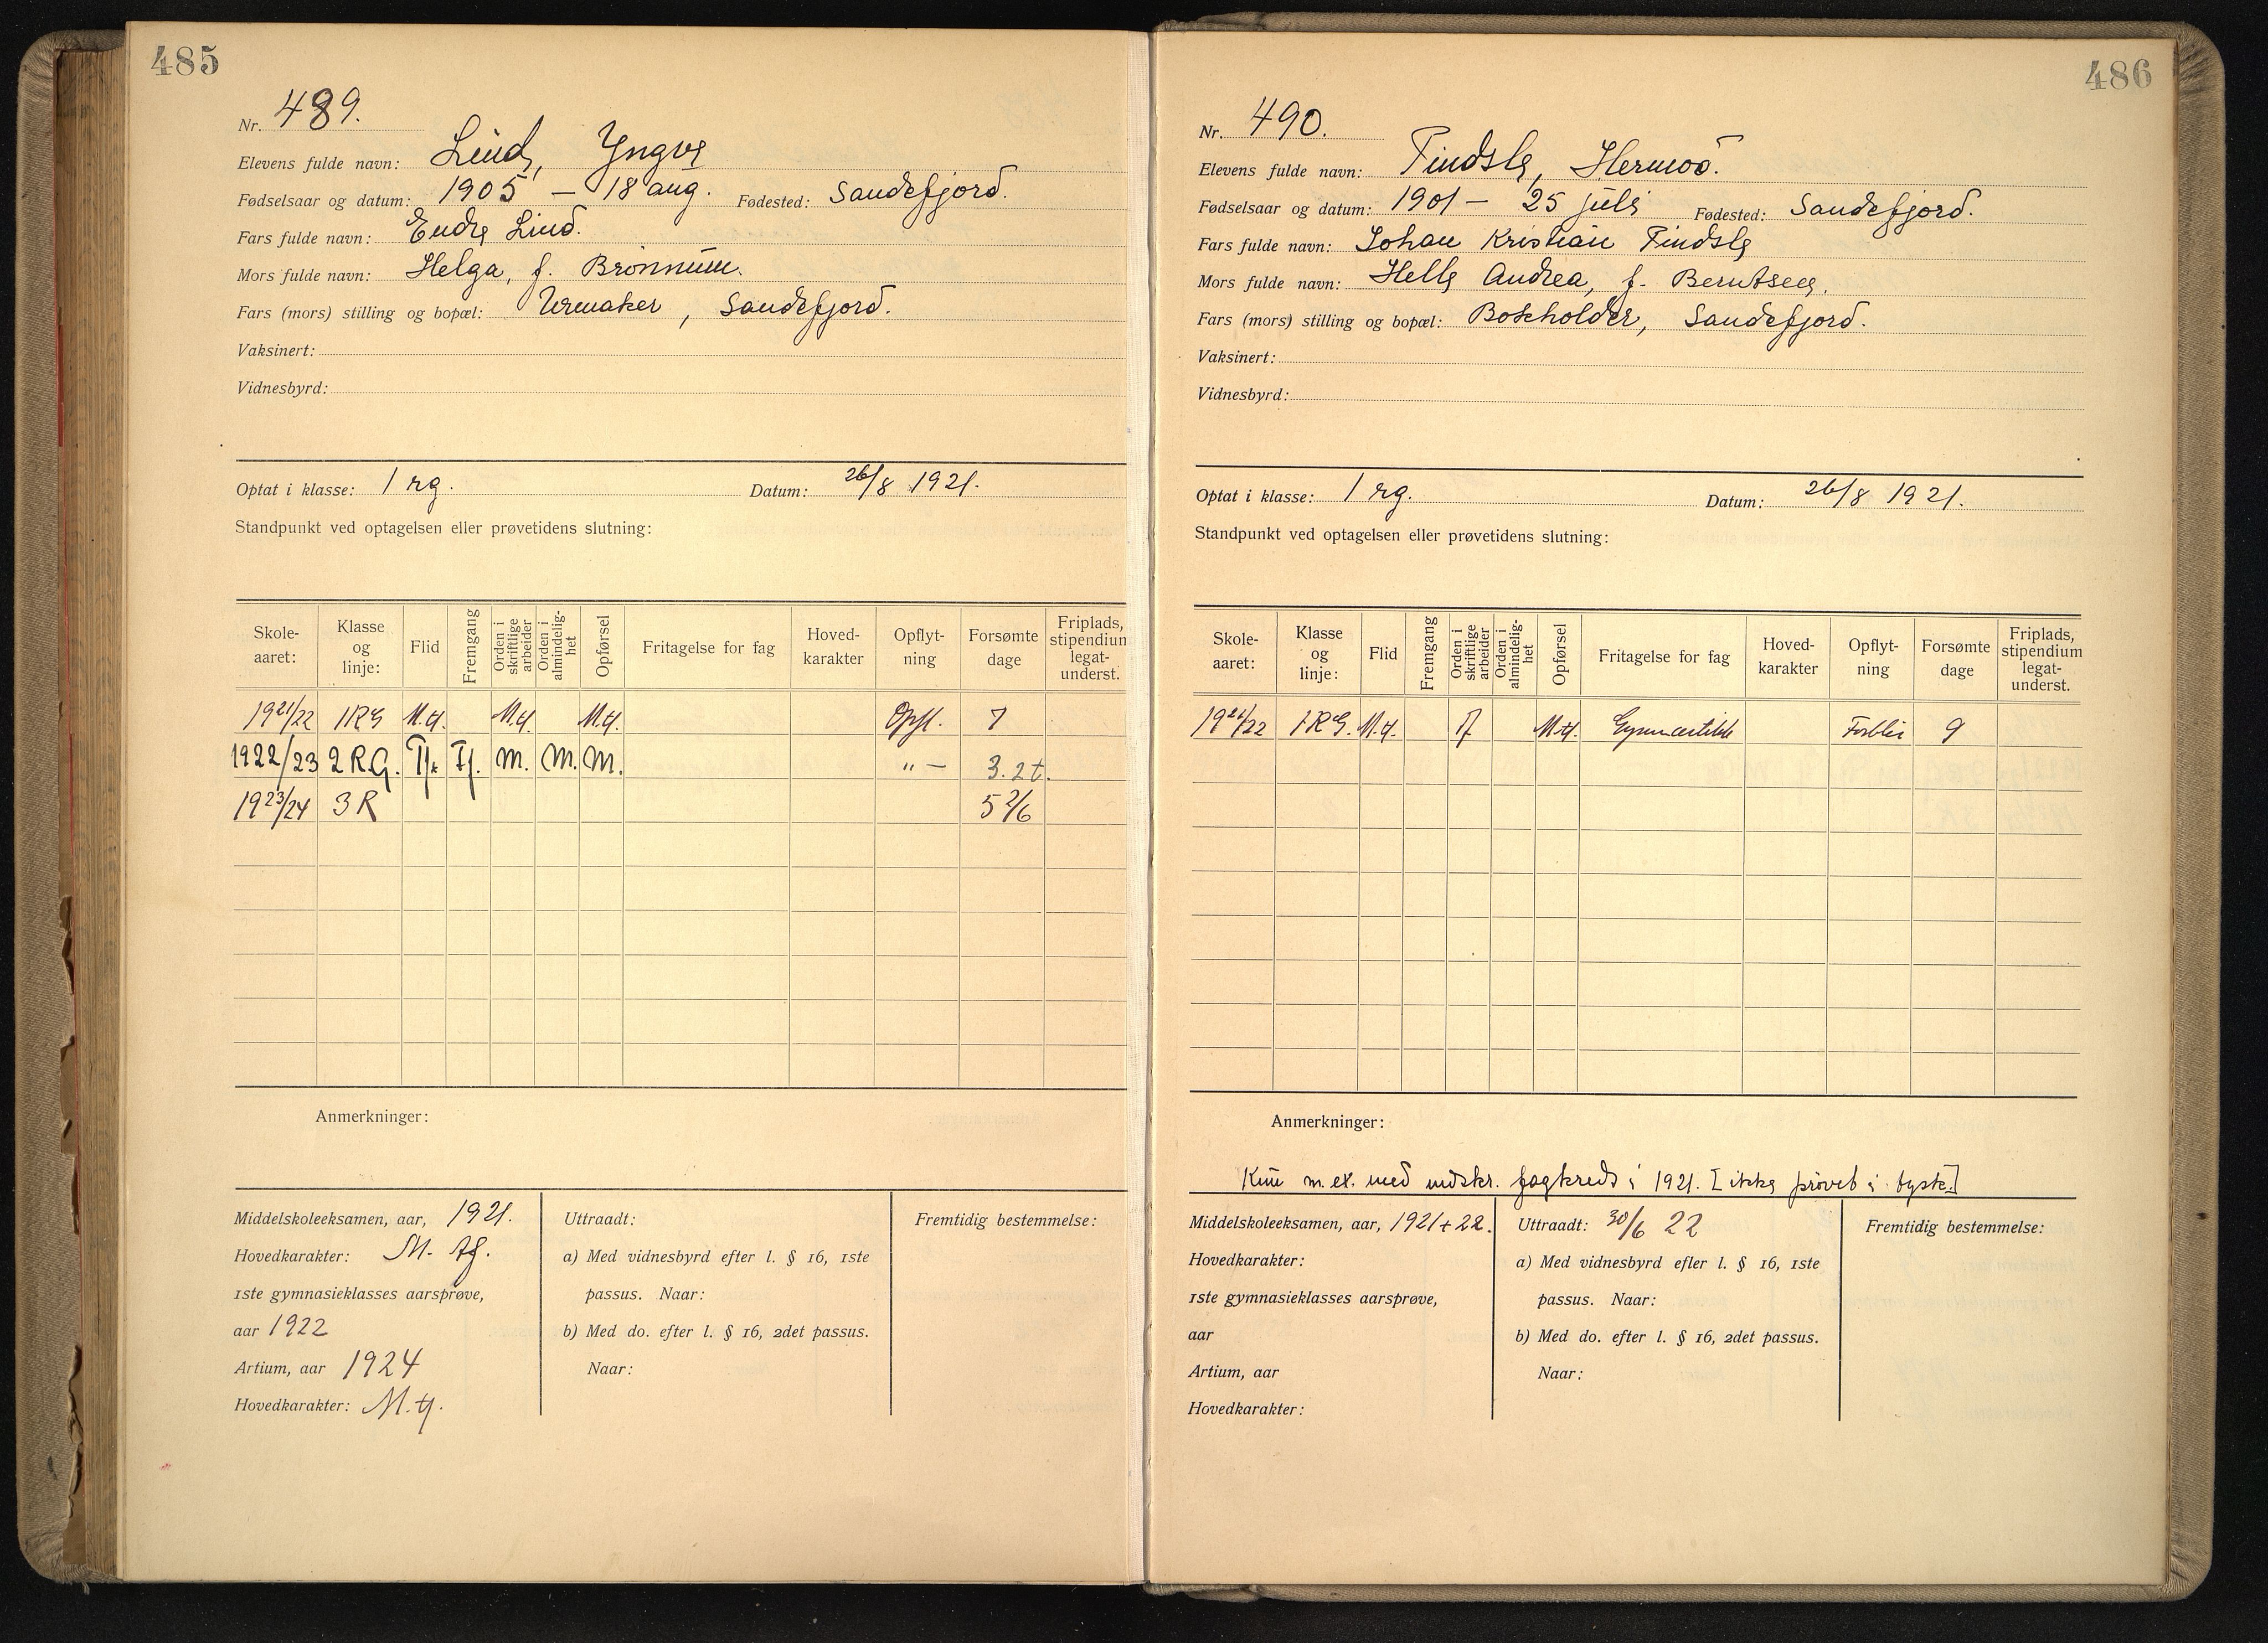 485
Nr. 489.
Elevens fulde navn: Lind, Yngve
Fødselsaar og datum: 1905 — 18 aug. Fødested: Sandefjord.
Fars fulde navn: Endre Lind.
Mors fulde navn: Helga, f. Brønnum.
Fars (mors) stilling og bopæl: Urmaker, Sandefjord.
Vaksinert:
Vidnesbyrd:
Optat i klasse: 1 rg. Datum: 26/8 1921.
Standpunkt ved optagelsen eller prøvetidens slutning:
Skole-aaret: Klasse og linje: Flid Fremgang Orden i skriftlige arbeider Orden i almindelig-het Opførsel Fritagelse for fag Hoved-karakter Opflyt-ning Forsømte dage Friplads, stipendium legat-underst.
1921/22 1RG M.tf. M.tf. M.tf. Opfl. 7
1922/23 2 R.G. Tf. Tf. M. M. M. " — 3. 2 t.
1923/24 3 R 5 2/6
Anmerkninger:
Middelskoleeksamen, aar, 1921.
Hovedkarakter: M. tf.
1ste gymnasieklasses aarsprøve,
aar 1922
Artium, aar 1924
Hovedkarakter: M. tf.
Uttraadt:
a) Med vidnesbyrd efter l. § 16, 1ste
passus. Naar:
b) Med do. efter l. § 16, 2det passus.
Naar:
Fremtidig bestemmelse:
486
Nr. 490.
Elevens fulde navn: Tindsle, Hermod.
Fødselsaar og datum: 1901 — 25 juli Fødested: Sandefjord.
Fars fulde navn: Johan Kristian Tindsle
Mors fulde navn: Helle Andrea, f. Berntsen.
Fars (mors) stilling og bopæl: Bokholder, Sandefjord.
Vaksinert:
Vidnesbyrd:
Optat i klasse: 1 rg. Datum: 26/8 1921.
Standpunkt ved optagelsen eller prøvetidens slutning:
Skole-aaret: Klasse og linje: Flid Fremgang Orden i skriftlige arbeider Orden i almindelig-het Opførsel Fritagelse for fag Hoved-karakter Opflyt-ning Forsømte dage Friplads, stipendium legat-underst.
1921/22 1RG. M.tf. Tf M.tf. Gymnastikk Forblir 9
Anmerkninger:
Kun m.ex. med indskr. fagkreds i 1921. [ikke prøvet i tysk.]
Middelskoleeksamen, aar, 1921+22.
Hovedkarakter:
1ste gymnasieklasses aarsprøve,
aar
Artium, aar
Hovedkarakter:
Uttraadt: 30/6 22
a) Med vidnesbyrd efter l. § 16, 1ste
passus. Naar:
b) Med do. efter l. § 16, 2det passus.
Naar:
Fremtidig bestemmelse: